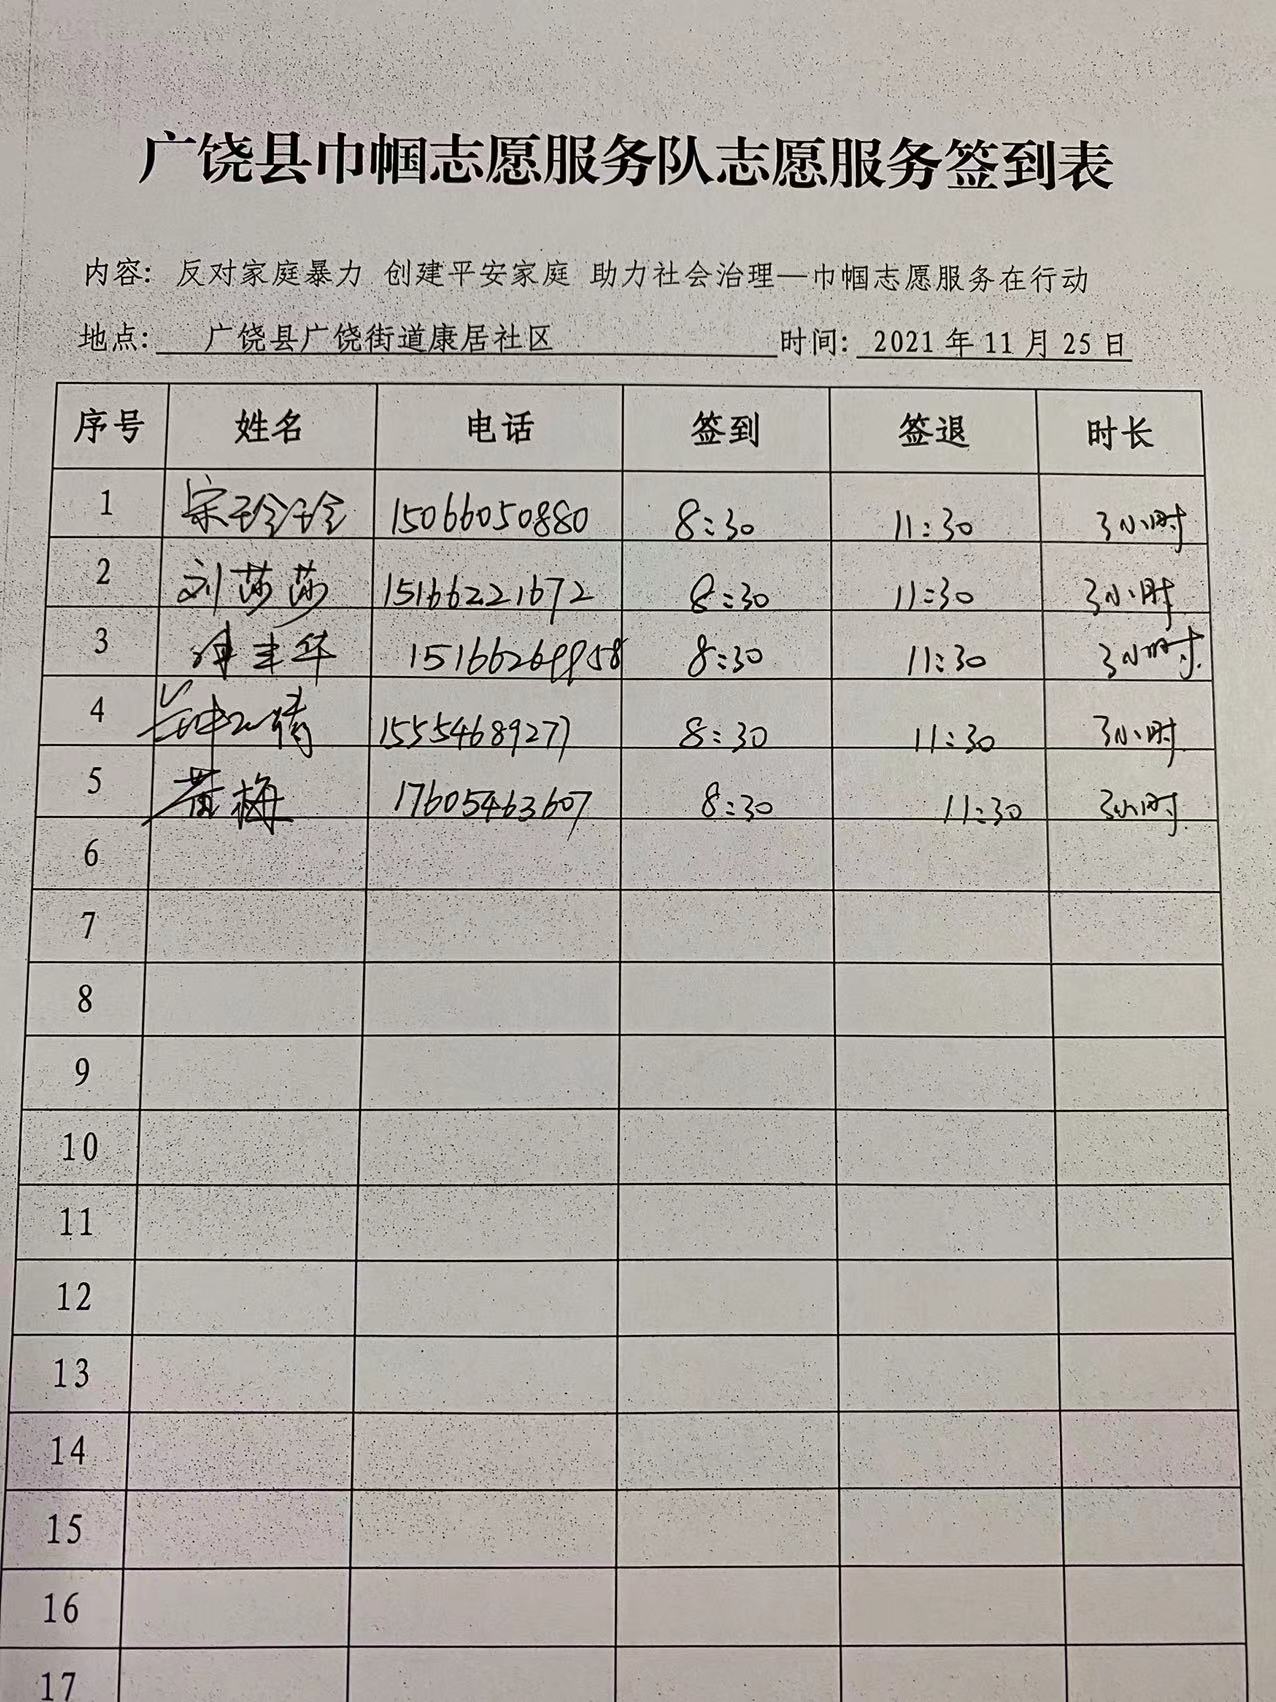 广饶县巾帼志愿服务队志愿服务签到表
内容: 反对家庭暴力 创建平安家庭 助力社会治理—巾帼志愿服务在行动
地点: 广饶县广饶街道康居社区 时间: 2021 年 11 月 25 日
序号 姓名 电话 签到 签退 时长
1 宋玲玲 15066050880 8:30 11:30 3小时
2 刘莎莎 15166221672 8:30 11:30 3小时
3 15166269958 8:30 11:30 3小时
4 15554689277 8:30 11:30 3小时
5 黄梅 17605463607 8:30 11:30 3小时
6
7
8
9
10
11
12
13
14
15
16
17